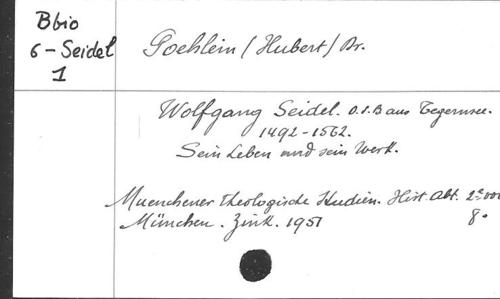 Bbio
6 - Seidel
1
Poehlein (Hubert) Dr.
Wolfgang Seidel. O.S.B aus Tegernsee.
1492-1562.
Sein Leben und sein Werk.
Muenchener theologische Studien. Hist Abt. 2e vol
München. Zink. 1951 8°